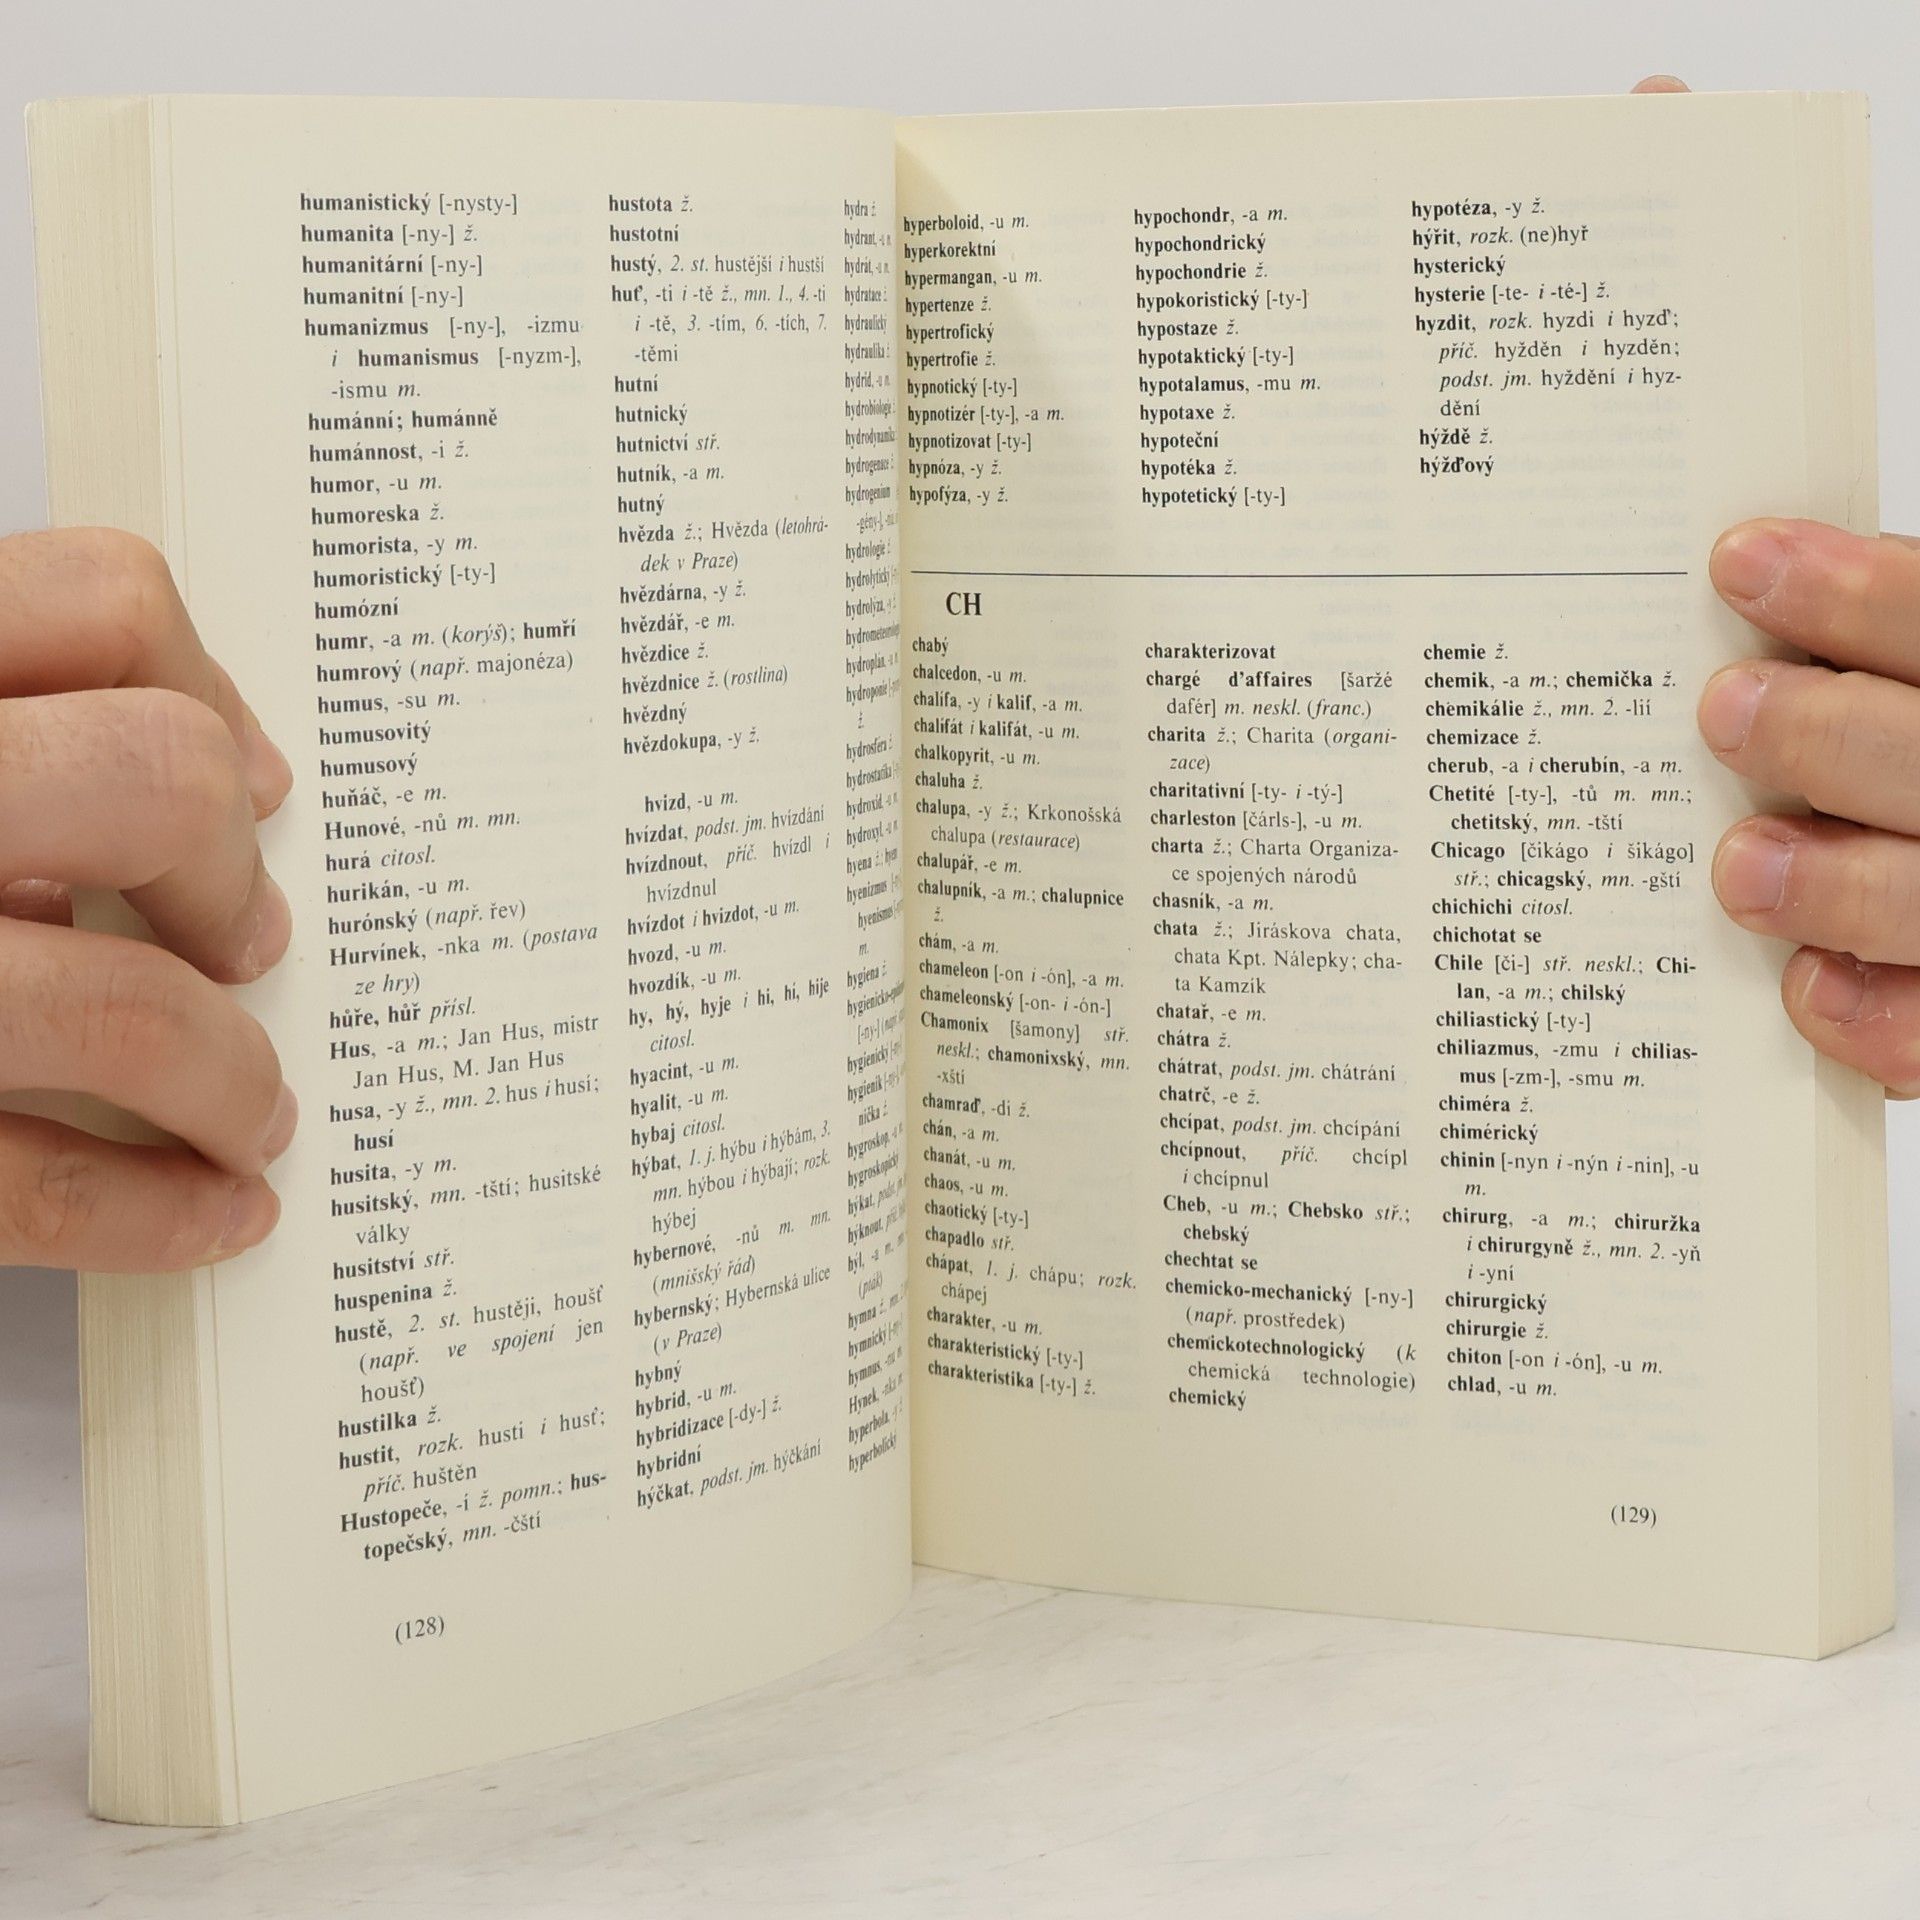 humanistický [-nysty-]
humanita [-ny-] ž.
humanitární [-ny-]
humanitní [-ny-]
humanizmus [-ny-], -izmu
i humanismus [-nyzm-],
-ismu m.
humánní; humánně
humánnost, -i ž.
humor, -u m.
humoreska ž.
humorista, -y m.
humoristický [-ty-]
humózní
humr, -a m. (korýš); humří
humrový (např. majonéza)
humus, -su m.
humusovitý
humusový
huňáč, -e m.
Hunové, -nů m. mn.
hurá citosl.
hurikán, -u m.
hurónský (např. řev)
Hurvínek, -nka m. (postava
ze hry)
hůře, hůř přísl.
Hus, -a m.; Jan Hus, mistr
Jan Hus, M. Jan Hus
husa, -y ž., mn. 2. hus i husí;
husí
husita, -y m.
husitský, mn. -tští; husitské
války
husitství stř.
huspenina ž.
hustě, 2. st. hustěji, houšť
(např. ve spojení jen
houšť)
hustilka ž.
hustit, rozk. husti i husť;
příč. huštěn
Hustopeče, -í ž. pomn.; hus-
topečský, mn. -čští
(128)
hustota ž.
hustotní
hustý, 2. st. hustější i hustší
huť, -ti i -tě ž., mn. 1., 4. -ti
i -tě, 3. -tím, 6. -tích, 7.
-těmi
hutní
hutnický
hutnictví stř.
hutník, -a m.
hutný
hvězda ž.; Hvězda (letohrá-
dek v Praze)
hvězdárna, -y ž.
hvězdář, -e m.
hvězdice ž.
hvězdnice ž. (rostlina)
hvězdný
hvězdokupa, -y ž.
hvizd, -u m.
hvízdat, podst. jm. hvízdání
hvízdnout, příč. hvízdl i
hvízdnul
hvízdot i hvizdot, -u m.
hvozd, -u m.
hvozdík, -u m.
hy, hý, hyje i hi, hí, hije
citosl.
hyacint, -u m.
hyalit, -u m.
hybaj citosl.
hýbat, 1. j. hýbu i hýbám, 3.
mn. hýbou i hýbají; rozk.
hýbej
hybernové, -nů m. mn.
(mnišský řád)
hybernský; Hybernská ulice
(v Praze)
hybný
hybrid, -u m.
hybridizace [-dy-] ž.
hybridní
hýčkat, podst. jm. hýčkání
hydra ž.
hydrant, -u m.
hydrát, -u m.
hydratace ž.
hydraulický
hydraulika ž.
hydrid, -u m.
hydrobiologie ž.
hydrodynamika
hydrogenace ž.
hydrogenium
hydrologie ž.
hydrolytický
hydrolýza, -y ž.
hydroplán, -u m.
hydroponie
ž.
hydrosféra ž.
hydrostatika
hydroxid, -u m.
hydroxyl, -u m.
hyena ž.; hyen
hyenizmus
hyenismus
m.
hygiena ž.
hygienický
hygienik
nička ž.
hygroskop, -u m.
hygroskopický
hýkat,
hýknout,
hýl, -a m.
(pták)
hymna ž.
hymnický
hymnus,
Hynek, -nka m.
hyperbola, -y ž.
hyperbolický
hyperboloid, -u m.
hyperkorektní
hypermangan, -u m.
hypertenze ž.
hypertrofický
hypertrofie ž.
hypnotický [-ty-]
hypnotizér [-ty-], -a m.
hypnotizovat [-ty-]
hypnóza, -y ž.
hypofýza, -y ž.
hypochondr, -a m.
hypochondrický
hypochondrie ž.
hypokoristický [-ty-]
hypostaze ž.
hypotaktický [-ty-]
hypotalamus, -mu m.
hypotaxe ž.
hypoteční
hypotéka ž.
hypotetický [-ty-]
hypotéza, -y ž.
hýřit, rozk. (ne)hyř
hysterický
hysterie [-te- i -té-] ž.
hyzdit, rozk. hyzdi i hyzď;
příč. hyžděn i hyzděn;
podst. jm. hyždění i hyz-
dění
hýždě ž.
hýžďový
CH
chabý
chalcedon, -u m.
chalífa, -y i kalif, -a m.
chalífát i kalifát, -u m.
chalkopyrit, -u m.
chaluha ž.
chalupa, -y ž.; Krkonošská
chalupa (restaurace)
chalupář, -e m.
chalupník, -a m.; chalupnice
ž.
chám, -a m.
chameleon [-on i -ón], -a m.
chameleonský [-on- i -ón-]
Chamonix [šamony] stř.
neskl.; chamonixský, mn.
-xští
chamraď, -di ž.
chán, -a m.
chanát, -u m.
chaos, -u m.
chaotický [-ty-]
chapadlo stř.
chápat, 1. j. chápu; rozk.
chápej
charakter, -u m.
charakteristický [-ty-]
charakteristika [-ty-] ž.
charakterizovat
chargé d'affaires [šaržé
dafér] m. neskl. (franc.)
charita ž.; Charita (organi-
zace)
charitativní [-ty- i -tý-]
charleston [čárls-], -u m.
charta ž.; Charta Organiza-
ce spojených národů
chasník, -a m.
chata ž.; Jiráskova chata,
chata Kpt. Nálepky; cha-
ta Kamzík
chatař, -e m.
chátra ž.
chátrat, podst. jm. chátrání
chatrč, -e ž.
chcípat, podst. jm. chcípání
chcípnout, příč. chcípl
i chcípnul
Cheb, -u m.; Chebsko stř.;
chebský
chechtat se
chemicko-mechanický [-ny-]
(např. prostředek)
chemickotechnologický (k
chemická technologie)
chemický
chemie ž.
chemik, -a m.; chemička ž.
chemikálie ž., mn. 2. -lií
chemizace ž.
cherub, -a i cherubín, -a m.
Chetité [-ty-], -tů m. mn.;
chetitský, mn. -tští
Chicago [čikágo i šikágo]
stř.; chicagský, mn. -gští
chichichi citosl.
chichotat se
Chile [či-] stř. neskl.; Chi-
lan, -a m.; chilský
chiliastický [-ty-]
chiliazmus, -zmu i chilias-
mus [-zm-], -smu m.
chiméra ž.
chimérický
chinin [-nyn i -nýn i -nin], -u
m.
chirurg, -a m.; chiruržka
i chirurgyně ž., mn. 2. -yň
i -yní
chirurgický
chirurgie ž.
chiton [-on i -ón], -u m.
chlad, -u m.
(129)